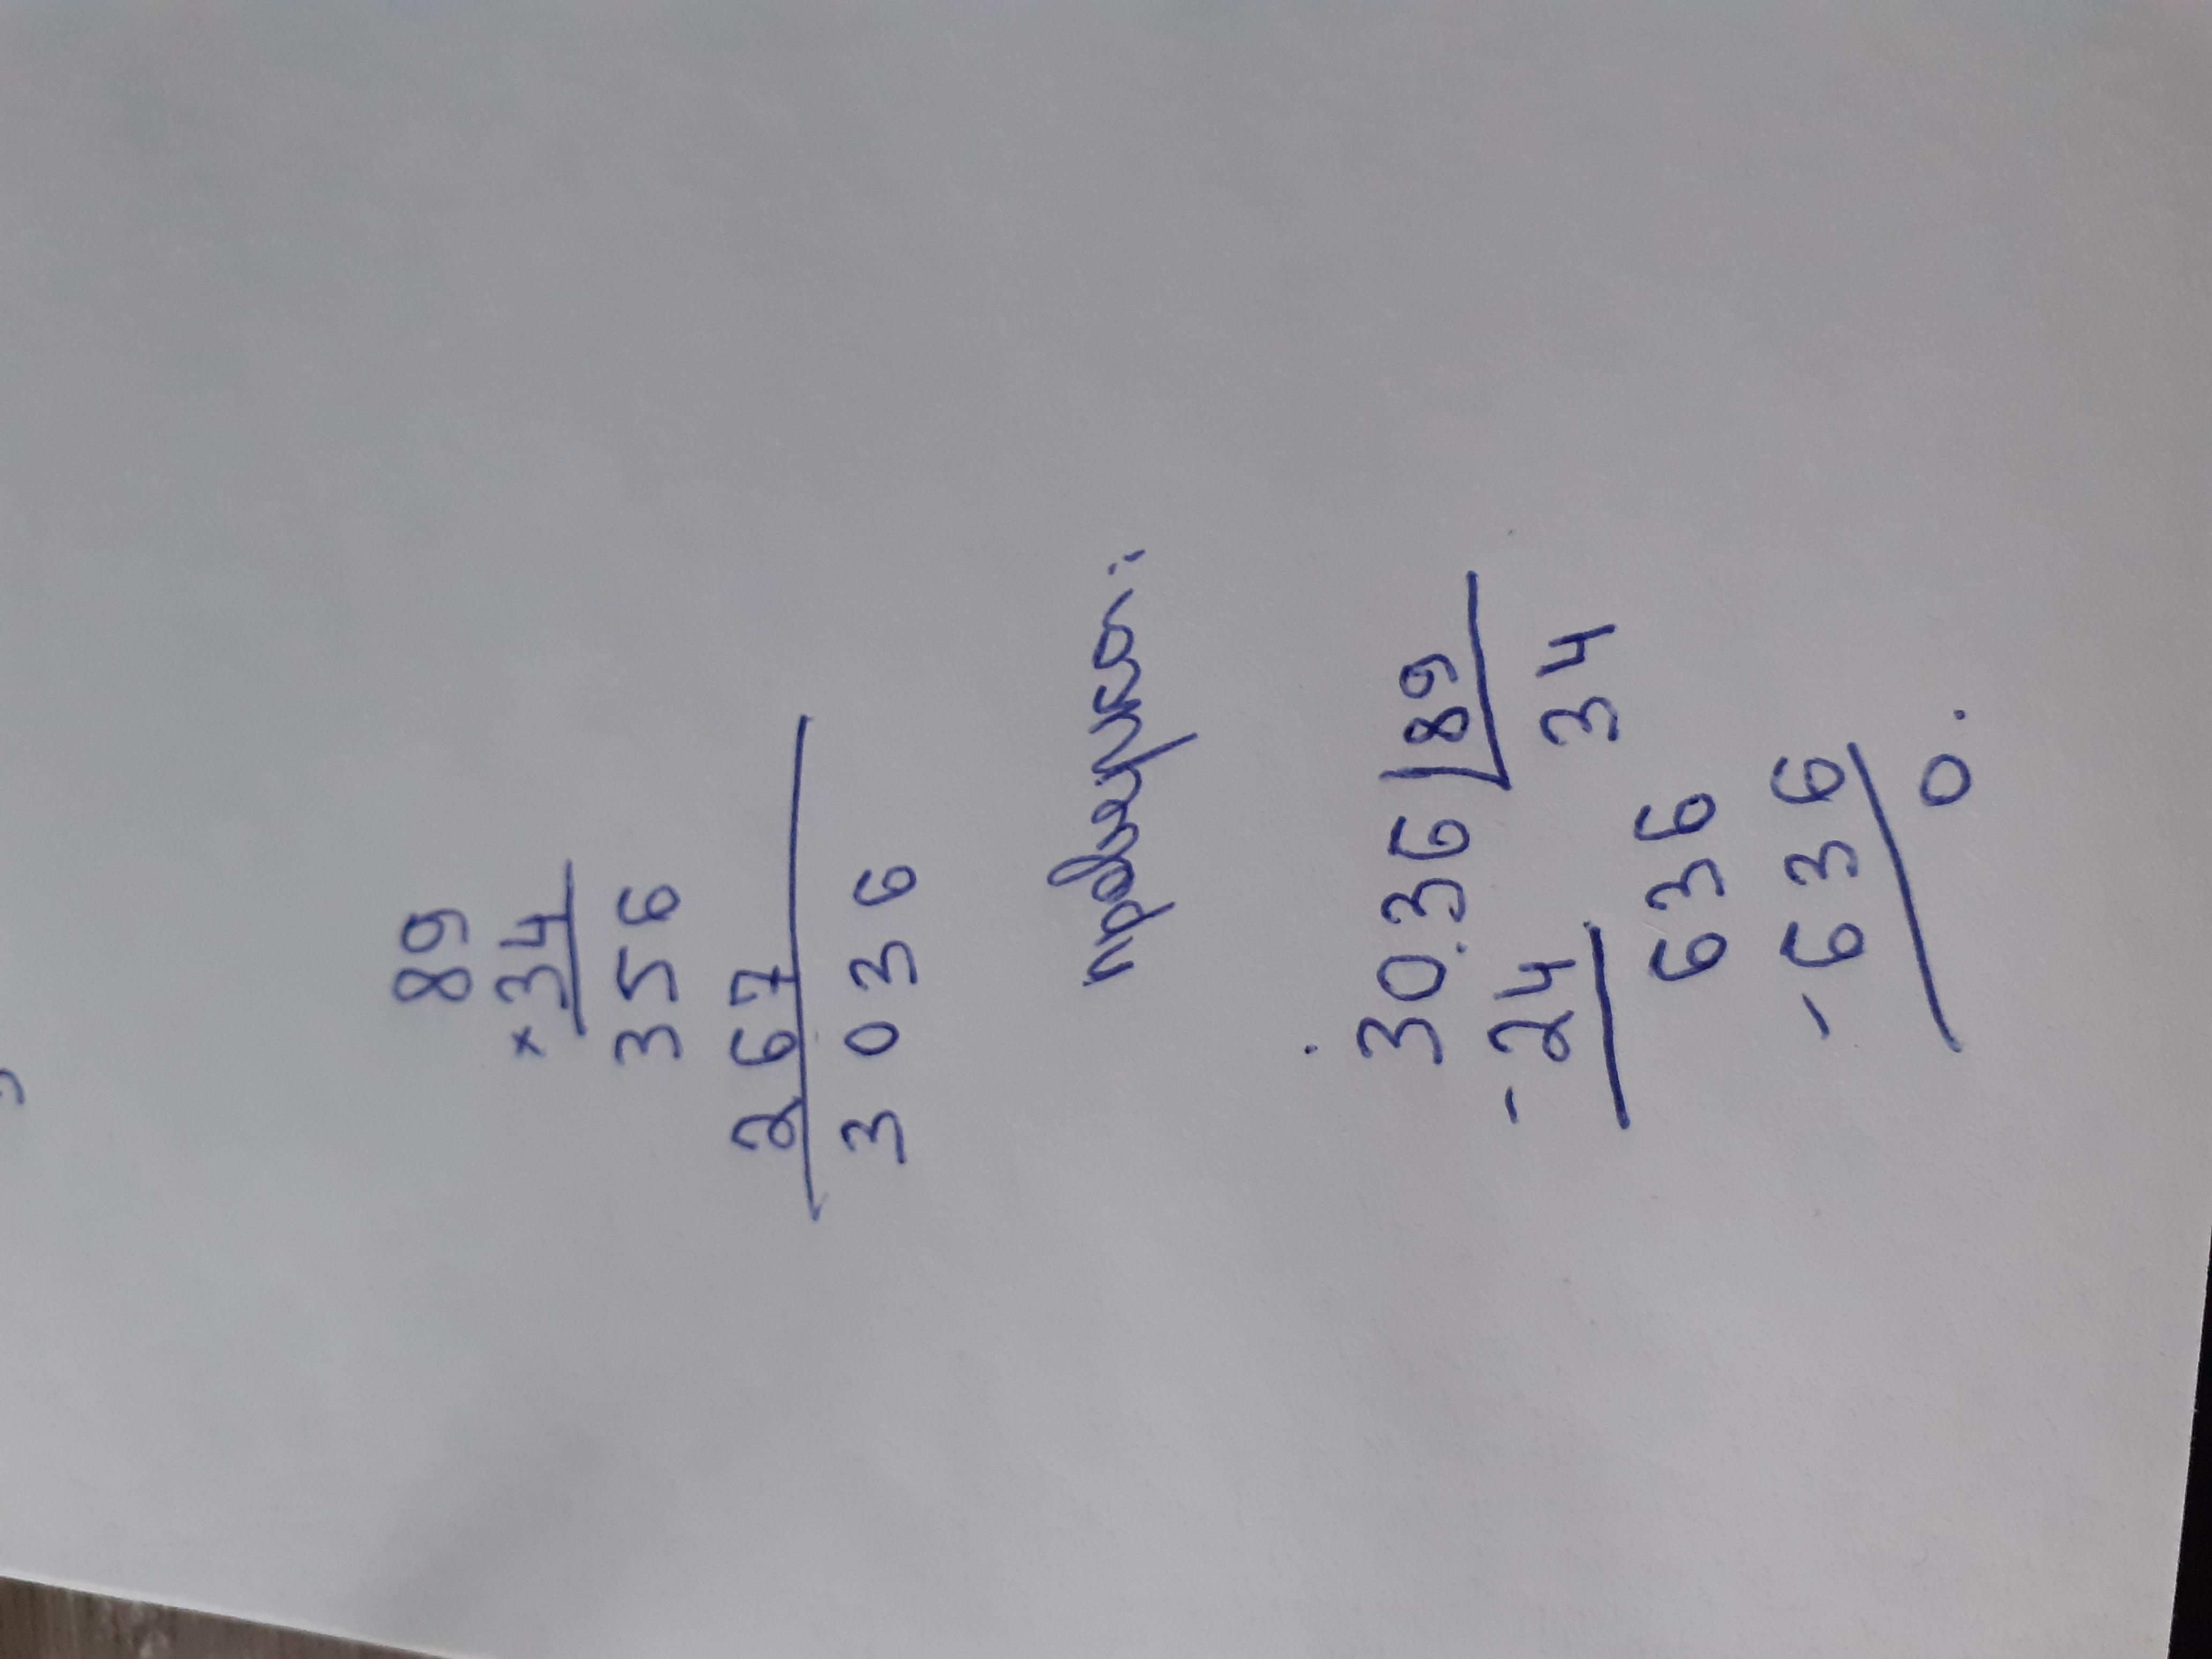 89
×34
356
267
3036
проверка:
3036|89
-24 34
636
-636
0.